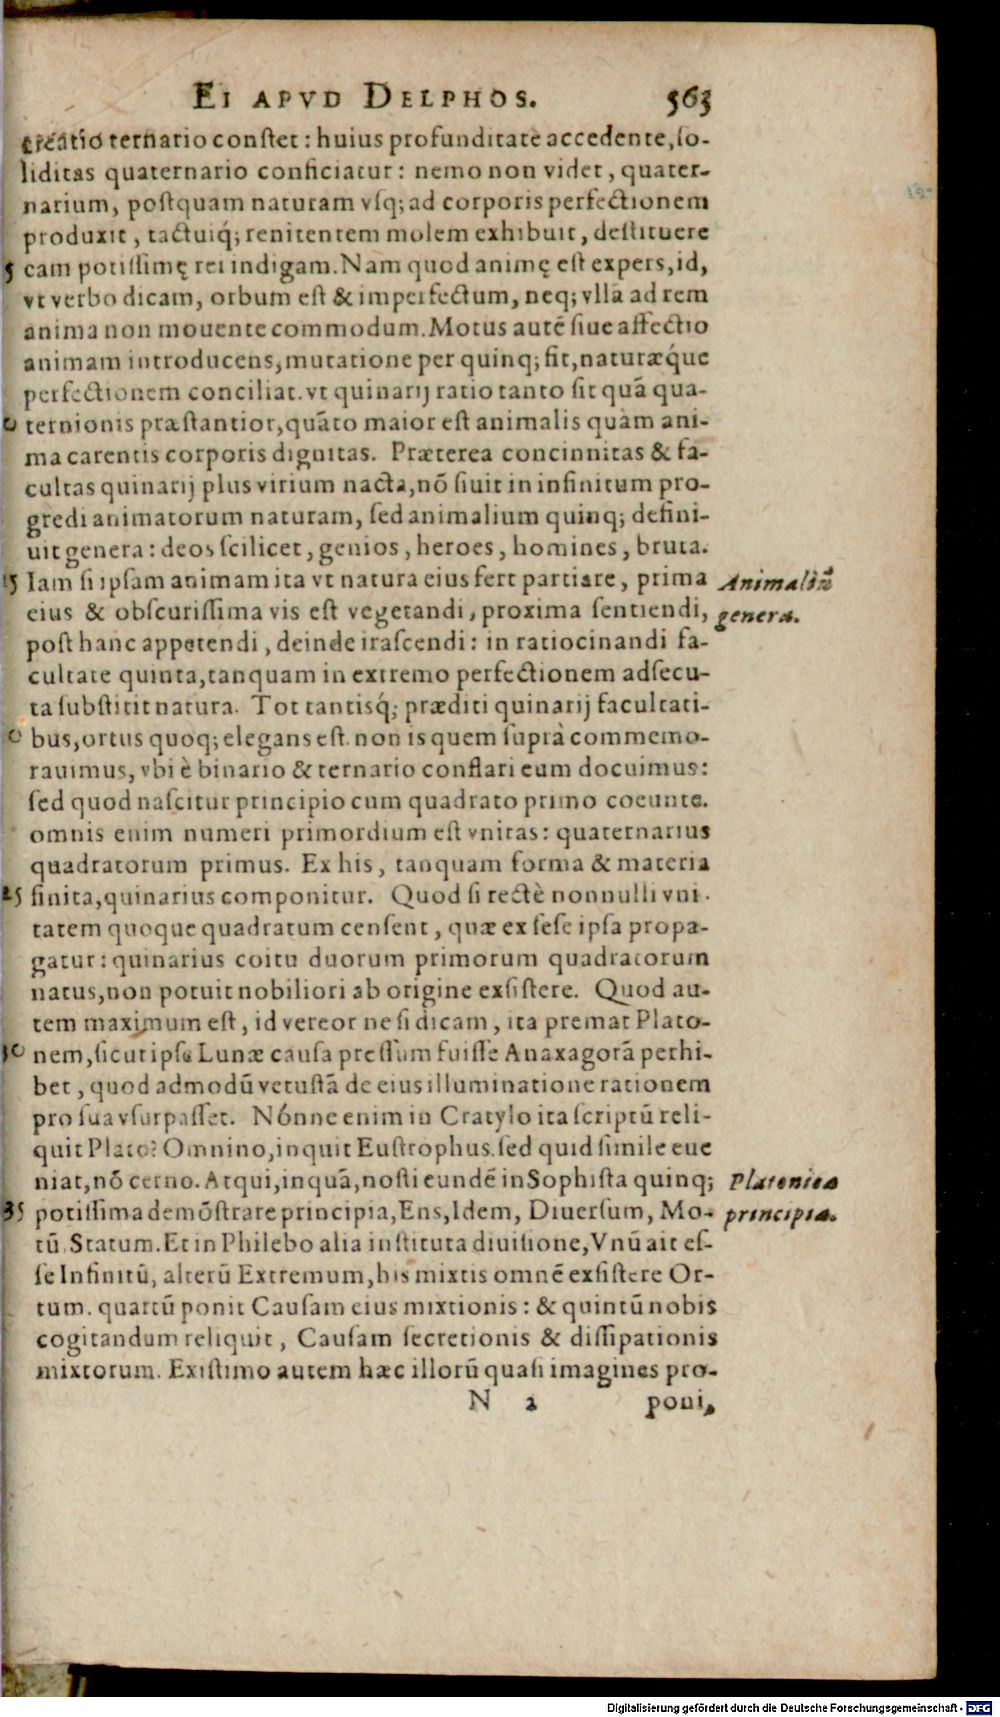 EI APVD DELPHOS. 563
creatio ternario constet: huius profunditate accedente, so-
liditas quaternario conficiatur: nemo non videt, quater-
narium, postquam naturam vsq; ad corporis perfectionem
produxit, tactuiq́; renitentem molem exhibuit, destituere
5 eam potissimę rei indigam. Nam quod animę est expers, id,
vt verbo dicam, orbum est & imperfectum, neq; vllā ad rem
anima non mouente commodum. Motus autē siue affectio
animam introducens, mutatione per quinq; fit, naturæq́ue
perfectionem conciliat. vt quinarij ratio tanto sit quā qua-
0 ternionis præstantior, quāto maior est animalis quàm ani-
ma carentis corporis dignitas. Præterea concinnitas & fa-
cultas quinarij plus virium nacta, nō siuit in infinitum pro-
gredi animatorum naturam, sed animalium quinq; defini-
uit genera: deos scilicet, genios, heroes, homines, bruta.
15 Iam si ipsam animam ita vt natura eius fert partiare, prima Animaliū
eius & obscurissima vis est vegetandi, proxima sentiendi, genera.
post hanc appetendi, deinde irascendi: in ratiocinandi fa-
cultate quinta, tanquam in extremo perfectionem adsecu-
ta substitit natura. Tot tantisq́; præditi quinarij facultati-
0 bus, ortus quoq; elegans est. non is quem suprà commemo-
rauimus, vbi è binario & ternario conflari eum docuimus:
sed quod nascitur principio cum quadrato primo coeunte.
omnis enim numeri primordium est vnitas: quaternarius
quadratorum primus. Ex his, tanquam forma & materia
25 finita, quinarius componitur. Quod si rectè nonnulli vni-
tatem quoque quadratum censent, quæ ex sese ipsa propa-
gatur: quinarius coitu duorum primorum quadratorum
natus, non potuit nobiliori ab origine exsistere. Quod au-
tem maximum est, id vereor ne si dicam, ita premat Plato-
30 nem, sicut ipse Lunæ causa pressum fuisse Anaxagorā perhi-
bet, quod admodū vetustā de eius illuminatione rationem
pro sua vsurpasset. Nónne enim in Cratylo ita scriptū reli-
quit Plato? Omnino, inquit Eustrophus. sed quid simile eue
niat, nō cerno. Atqui, inquā, nosti eundē in Sophista quinq; Platonica
35 potissima demōstrare principia, Ens, Idem, Diuersum, Mo- principia.
tū, Statum. Et in Philebo alia instituta diuisione, Vnū ait es-
se Infinitū, alterū Extremum, his mixtis omnē exsistere Or-
tum. quartū ponit Causam eius mixtionis: & quintū nobis
cogitandum reliquit, Causam secretionis & dissipationis
mixtorum. Existimo autem hæc illorū quasi imagines pro-
N 2 poni,
Digitalisierung gefördert durch die Deutsche Forschungsgemeinschaft - DFG